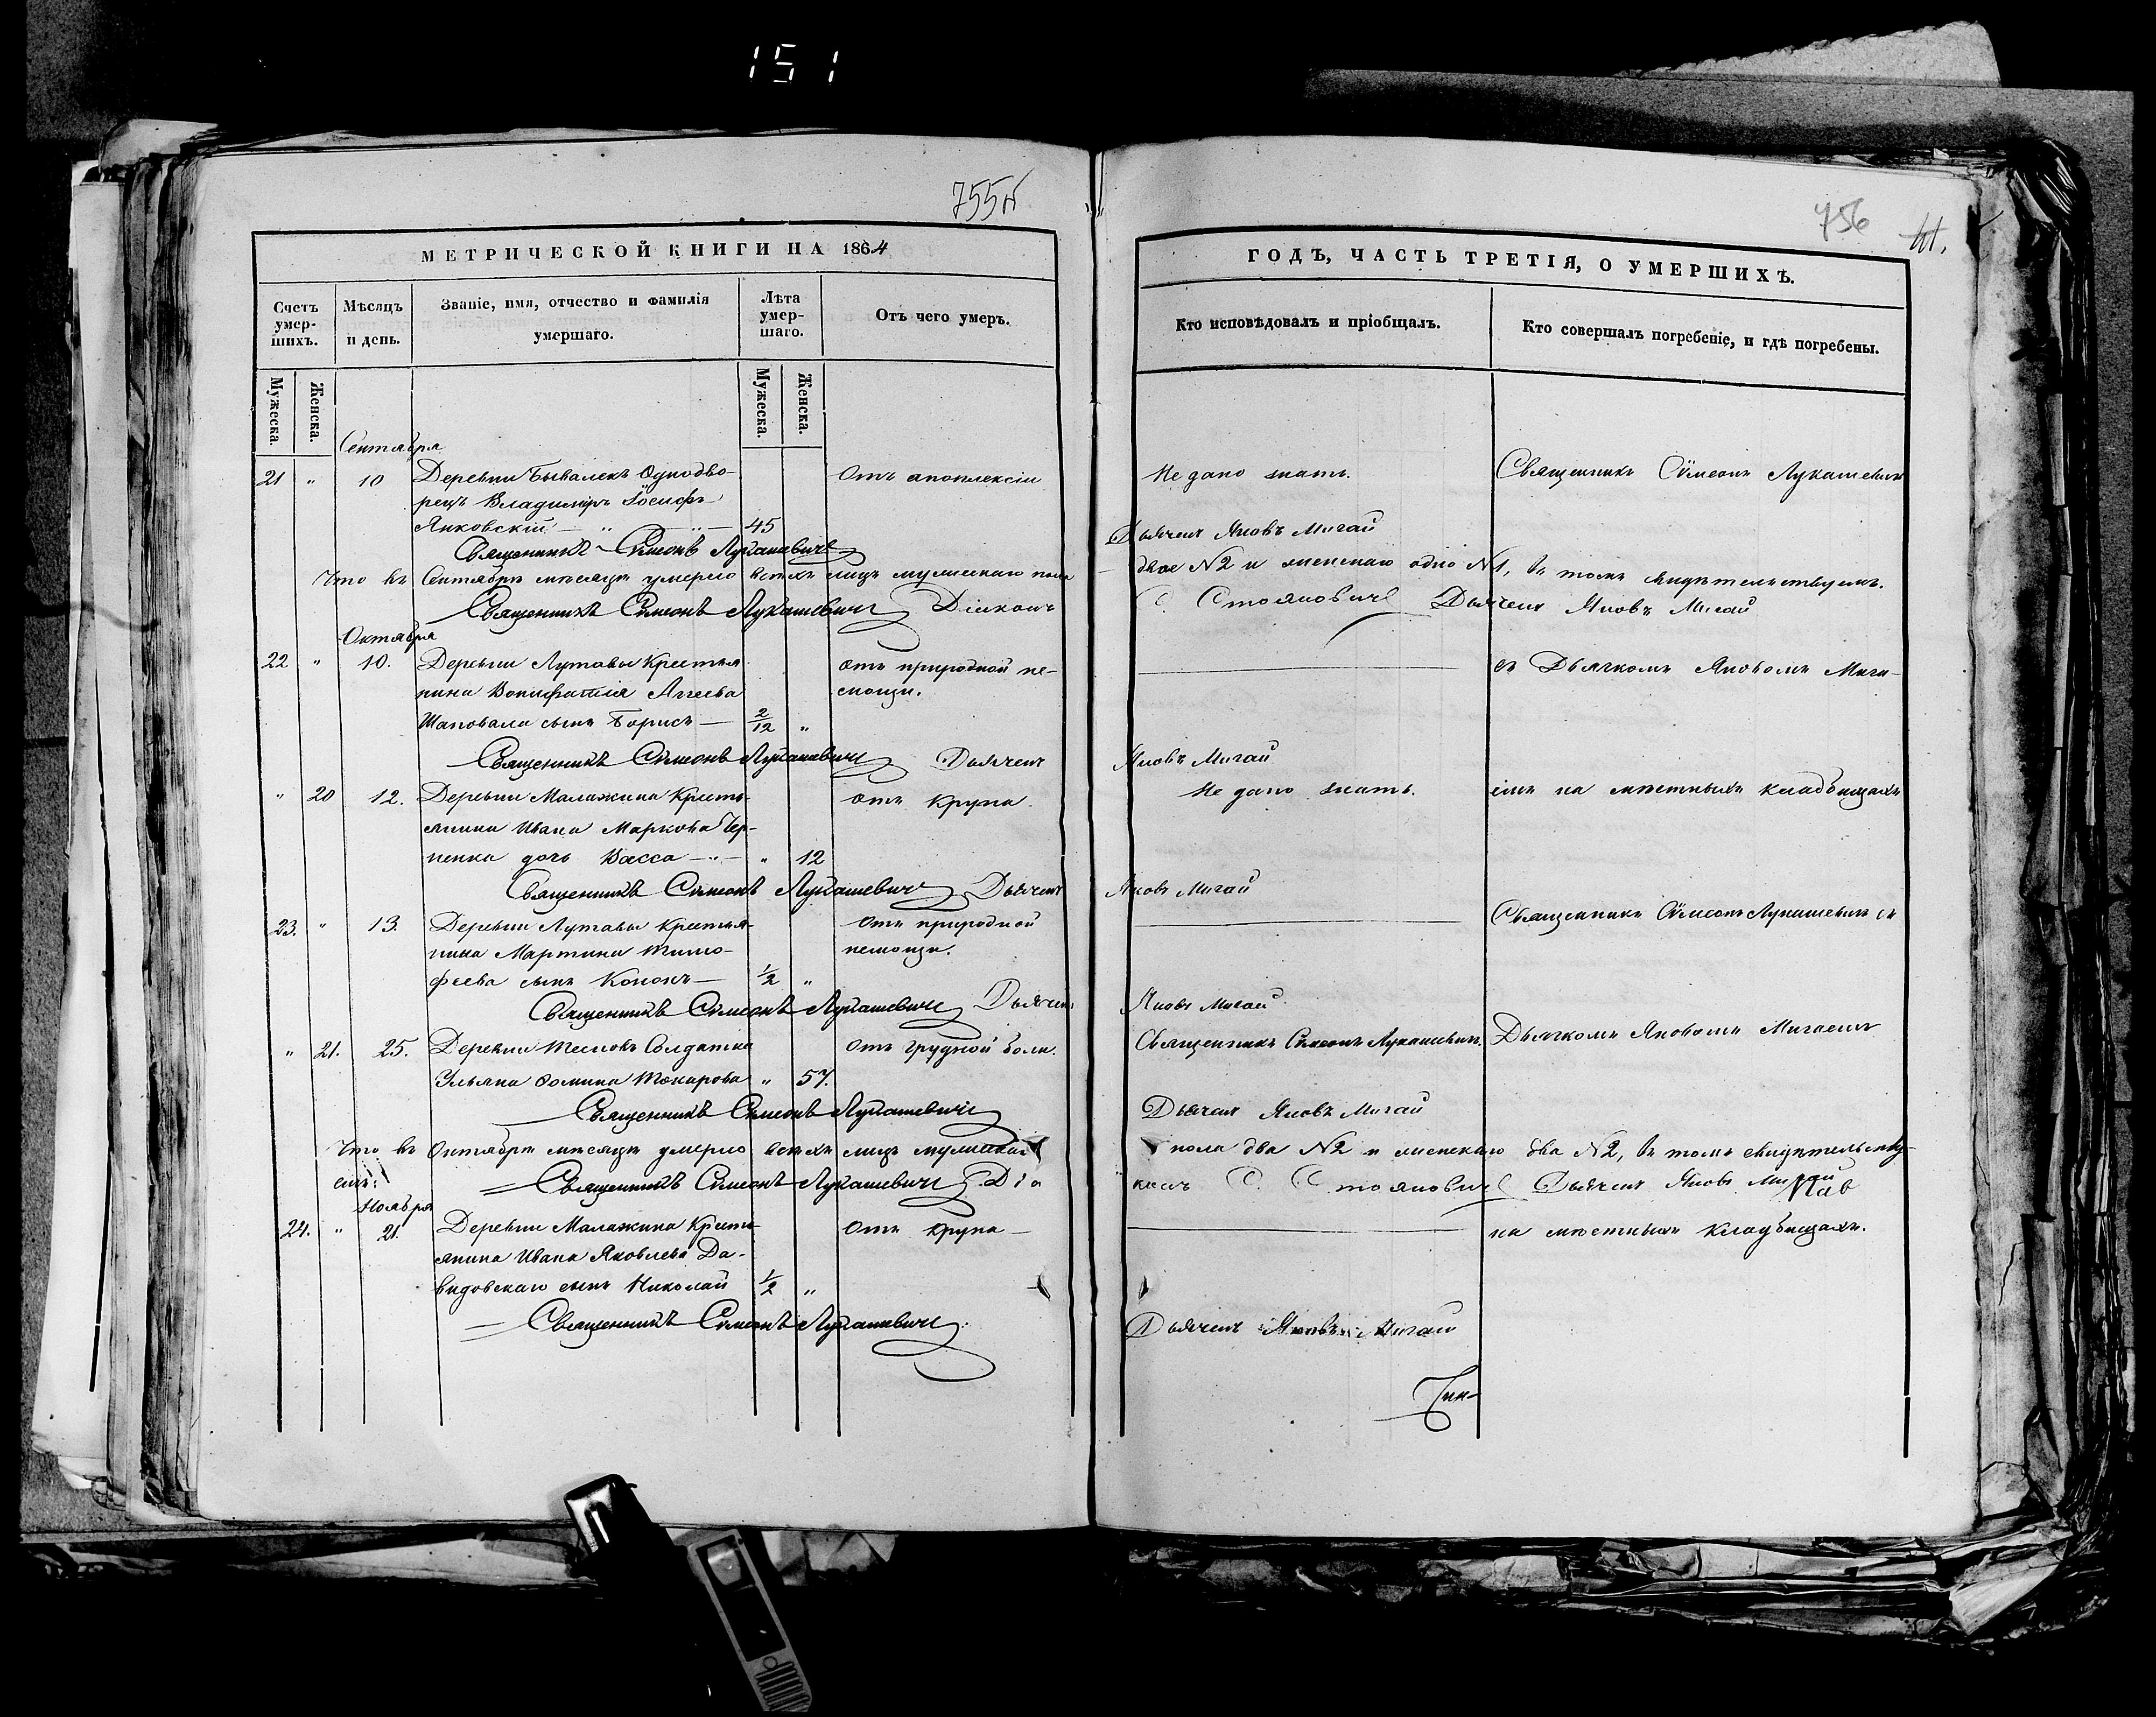 151
755
756
МЕТРИЧЕСКОЙ КНИГИ НА 1864
Счетъ умер-шихъ.
Мѣсяцъ и день.
Званіе, имя, отчество и фамилія умершаго.
Лѣта умер-шаго.
Отъ чего умеръ.
Мужеска.
Женска.
Мужеска.
Женска.
Сентября
21 " 10 Деревни Бывалекъ Однодво- Отъ апоплексіи
рецъ Владиміръ Іосифъ
Янковскій — " — " — 45
Священникъ Симеонъ Лукашевичъ
Что въ Сентябрѣ мѣсяцѣ умерло всѣхъ лицъ мужескаго пола
Священникъ Симеонъ Лукашевичъ Діаконъ
Октября
22 " 10. Деревни Лутавы Крестья- отъ природной не-
нина Вонифатія Аггеева мощи.
Шаповала сынъ Борисъ — 2/12 "
Священникъ Симеонъ Лукашевичъ Дьячекъ
" 20 12. Деревни Малажина Кресть- отъ крупа.
янина Ивана Маркова Чер-
ненка дочь Васса — " — " 12
Священникъ Симеонъ Лукашевичъ Дьячекъ
23. " 13. Деревни Лутавы крестья- Отъ природной
нина Мартина Тимо- немощи.
феева сынъ Кононъ — 1/2 "
Священникъ Симеонъ Лукашевичъ Дьячекъ
" 21. 25. Деревни Солдатка Отъ грудной боли.
Ульяна Фомина Токарова " 57.
Священникъ Симеонъ Лукашевичъ
Что въ Октябрѣ мѣсяцѣ умерло всѣхъ лицъ мужескаго
емъ: Священникъ Симеонъ Лукашевичъ Діа
Ноября
24. " 21. Деревни Малажина Кресть- Отъ крупа —
янина Ивана Яковлева Да-
видовскаго сынъ Николай 1/2 "
Священникъ Симеонъ Лукашевичъ
ГОДЪ, ЧАСТЬ ТРЕТІЯ, О УМЕРШИХЪ.
Кто исповѣдовалъ и пріобщалъ.
Кто совершалъ погребеніе, и гдѣ погребены.
Не дано знать. Священникъ Симеонъ Лукашевичъ
Дьячекъ Яковъ Мигай
двое №2 и женскаго одно №1, въ томъ свидѣтельствуемъ.
С. Стояновичъ Дьячекъ Яковъ Мигай
съ Дьячкомъ Яковомъ Мига-
Яковъ Мигай
Не дано знать. емъ на мѣстныхъ кладбищахъ
Яковъ Мигай
Священникъ Симеонъ Лукашевичъ съ
Яковъ Мигай
Священникъ Симеонъ Лукашевичъ. Дьячкомъ Яковомъ Мигаемъ
Дьячекъ Яковъ Мигай
пола два №2 и женскаго два №2, въ томъ свидѣтельству-
конъ С. Стояновичъ Дьячекъ Яковъ Мигай
на мѣстныхъ кладбищахъ.
Дьячекъ Яковъ Мигай